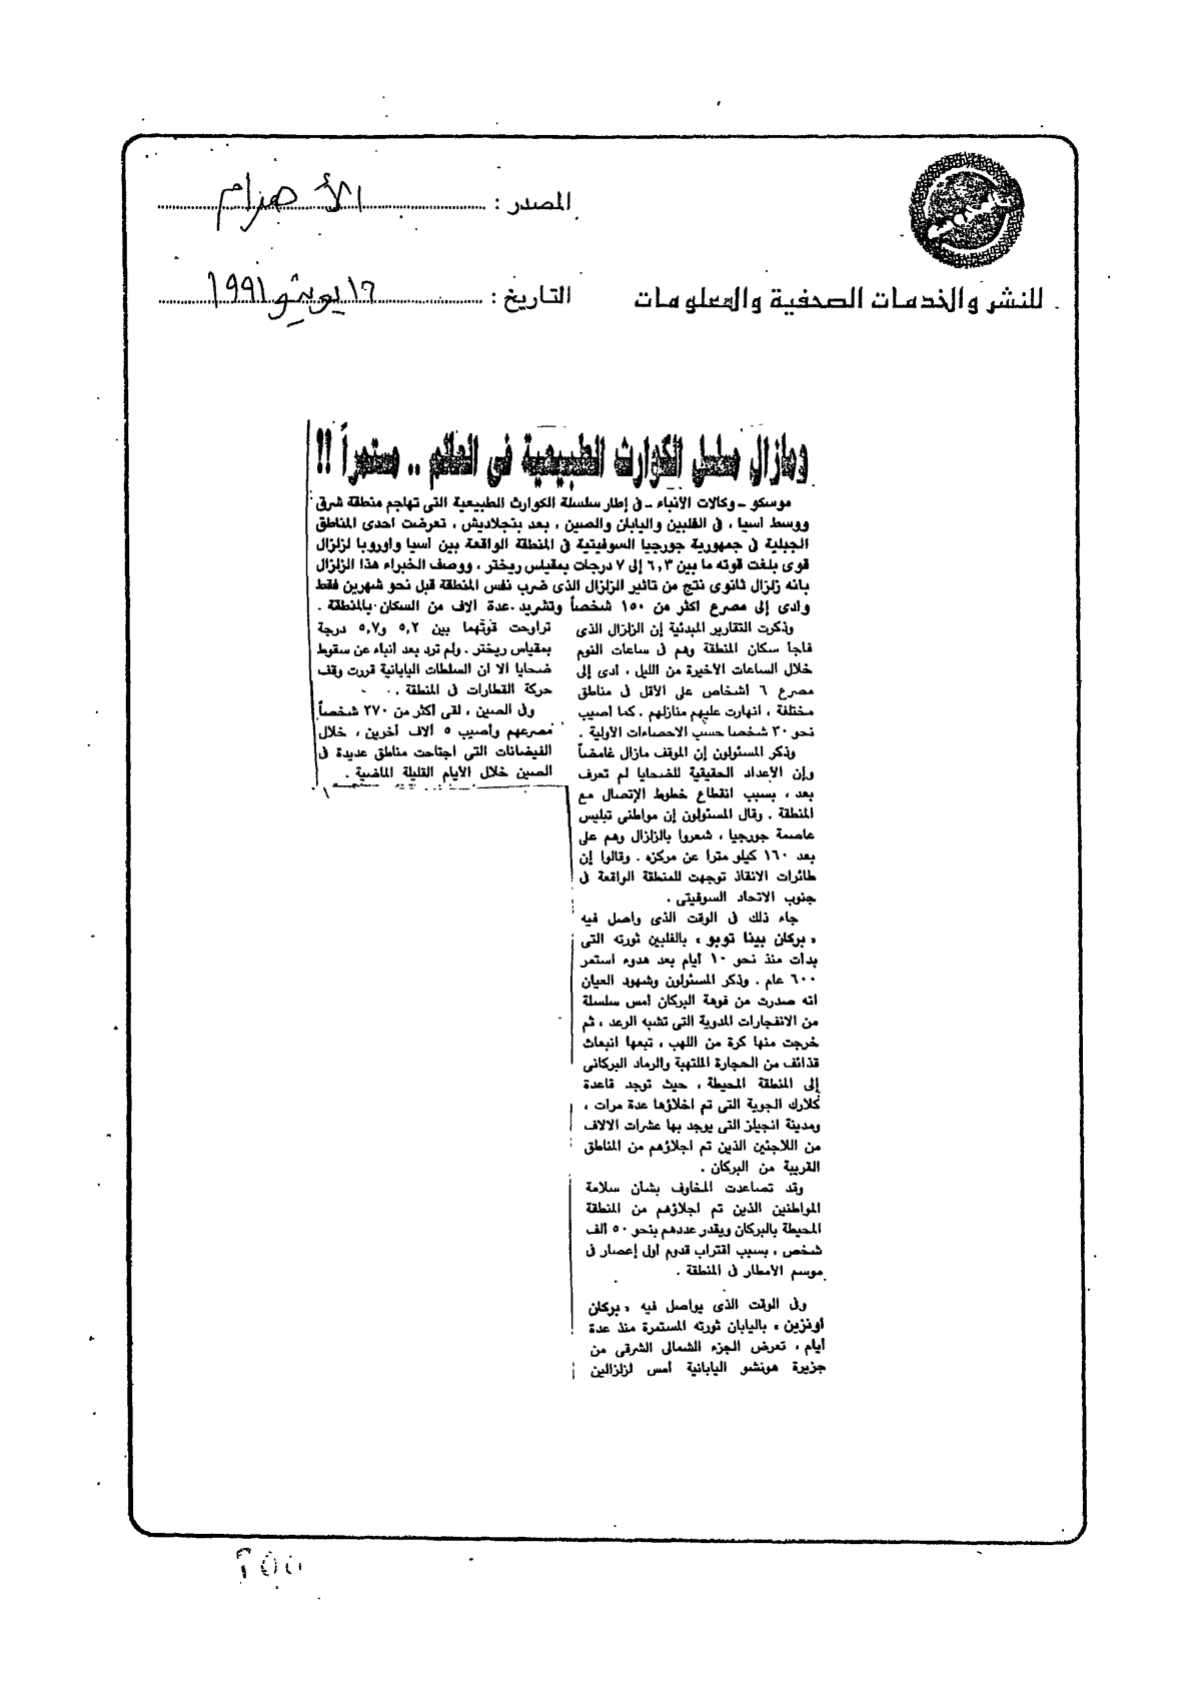 المصدر : الأهرام
للنشر والخدمات الصحفية والمعلومات
التاريخ : ١٦ يونيو ١٩٩١
ومازال مسلسل الكوارث الطبيعية فى العالم .. مستمراً !!
موسكو ـ وكالات الأنباء ـ فى إطار سلسلة الكوارث الطبيعية التى تهاجم منطقة شرق
ووسط اسيا ، فى الفلبين واليابان والصين ، بعد بنجلاديش ، تعرضت احدى المناطق
الجبلية فى جمهورية جورجيا السوفيتية فى المنطقة الواقعة بين اسيا واوروبا لزلزال
قوى بلغت قوته ما بين ٦,٣ إلى ٧ درجات بمقياس ريختر ، ووصف الخبراء هذا الزلزال
بانه زلزال ثانوى نتج من تاثير الزلزال الذى ضرب نفس المنطقة قبل نحو شهرين فقط
وادى إلى مصرع اكثر من ١٥٠ شخصاً وتشريد عدة الاف من السكان بالمنطقة .
وذكرت التقارير المبدئية إن الزلزال الذى
فاجا سكان المنطقة وهم فى ساعات النوم
خلال الساعات الأخيرة من الليل ، ادى إلى
مصرع ٦ أشخاص على الأقل فى مناطق
مختلفة ، انهارت عليهم منازلهم . كما أصيب
نحو ٣٠ شخصا حسب الاحصاءات الأولية .
وذكر المسئولون إن الموقف مازال غامضاً
وإن الأعداد الحقيقية للضحايا لم تعرف
بعد ، بسبب انقطاع خطوط الإتصال مع
المنطقة . وقال المسئولون إن مواطنى تبليس
عاصمة جورجيا ، شعروا بالزلزال وهم على
بعد ١٦٠ كيلو مترا عن مركزه . وقالوا إن
طائرات الانقاذ توجهت للمنطقة الواقعة فى
جنوب الاتحاد السوفيتى .
جاء ذلك فى الوقت الذى واصل فيه
« بركان بينا توبو » بالفلبين ثورته التى
بدأت منذ نحو ١٠ أيام بعد هدوء استمر
٦٠٠ عام . وذكر المسئولون وشهود العيان
انه صدرت من فوهة البركان أمس سلسلة
من الانفجارات المدوية التى تشبه الرعد ، ثم
خرجت منها كرة من اللهب ، تبعها انبعاث
قذائف من الحجارة الملتهبة والرماد البركانى
إلى المنطقة المحيطة ، حيث توجد قاعدة
كلارك الجوية التى تم اخلاؤها عدة مرات ،
ومدينة انجيلز التى يوجد بها عشرات الالاف
من اللاجئين الذين تم اجلاؤهم من المناطق
القريبة من البركان .
وقد تصاعدت المخاوف بشان سلامة
المواطنين الذين تم اجلاؤهم من المنطقة
المحيطة بالبركان ويقدر عددهم بنحو ٥٠ ألف
شخص ، بسبب اقتراب قدوم أول إعصار فى
موسم الأمطار فى المنطقة .
وفى الوقت الذى يواصل فيه « بركان
أونزين » باليابان ثورته المستمرة منذ عدة
أيام ، تعرض الجزء الشمالى الشرقى من
جزيرة هونشو اليابانية أمس لزلزالين
تراوحت قوتهما بين ٥,٢ و٥,٧ درجة
بمقياس ريختر . ولم ترد بعد انباء عن سقوط
ضحايا الا ان السلطات اليابانية قررت وقف
حركة القطارات فى المنطقة .
وفى الصين ، لقى أكثر من ٢٧٠ شخصاً
مصرعهم وأصيب ٥ ألاف آخرين ، خلال
الفيضانات التى اجتاحت مناطق عديدة فى
الصين خلال الأيام القليلة الماضية .